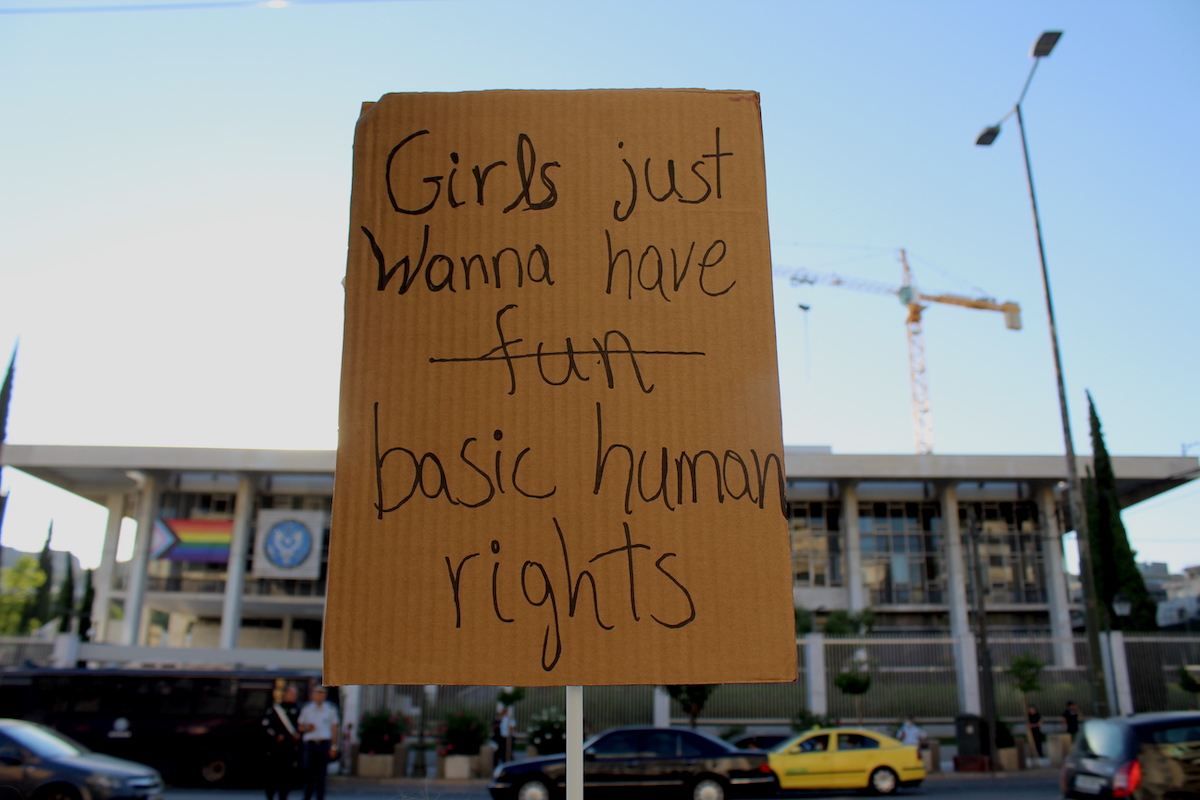 Girls just
Wanna have
fun
basic human
rights